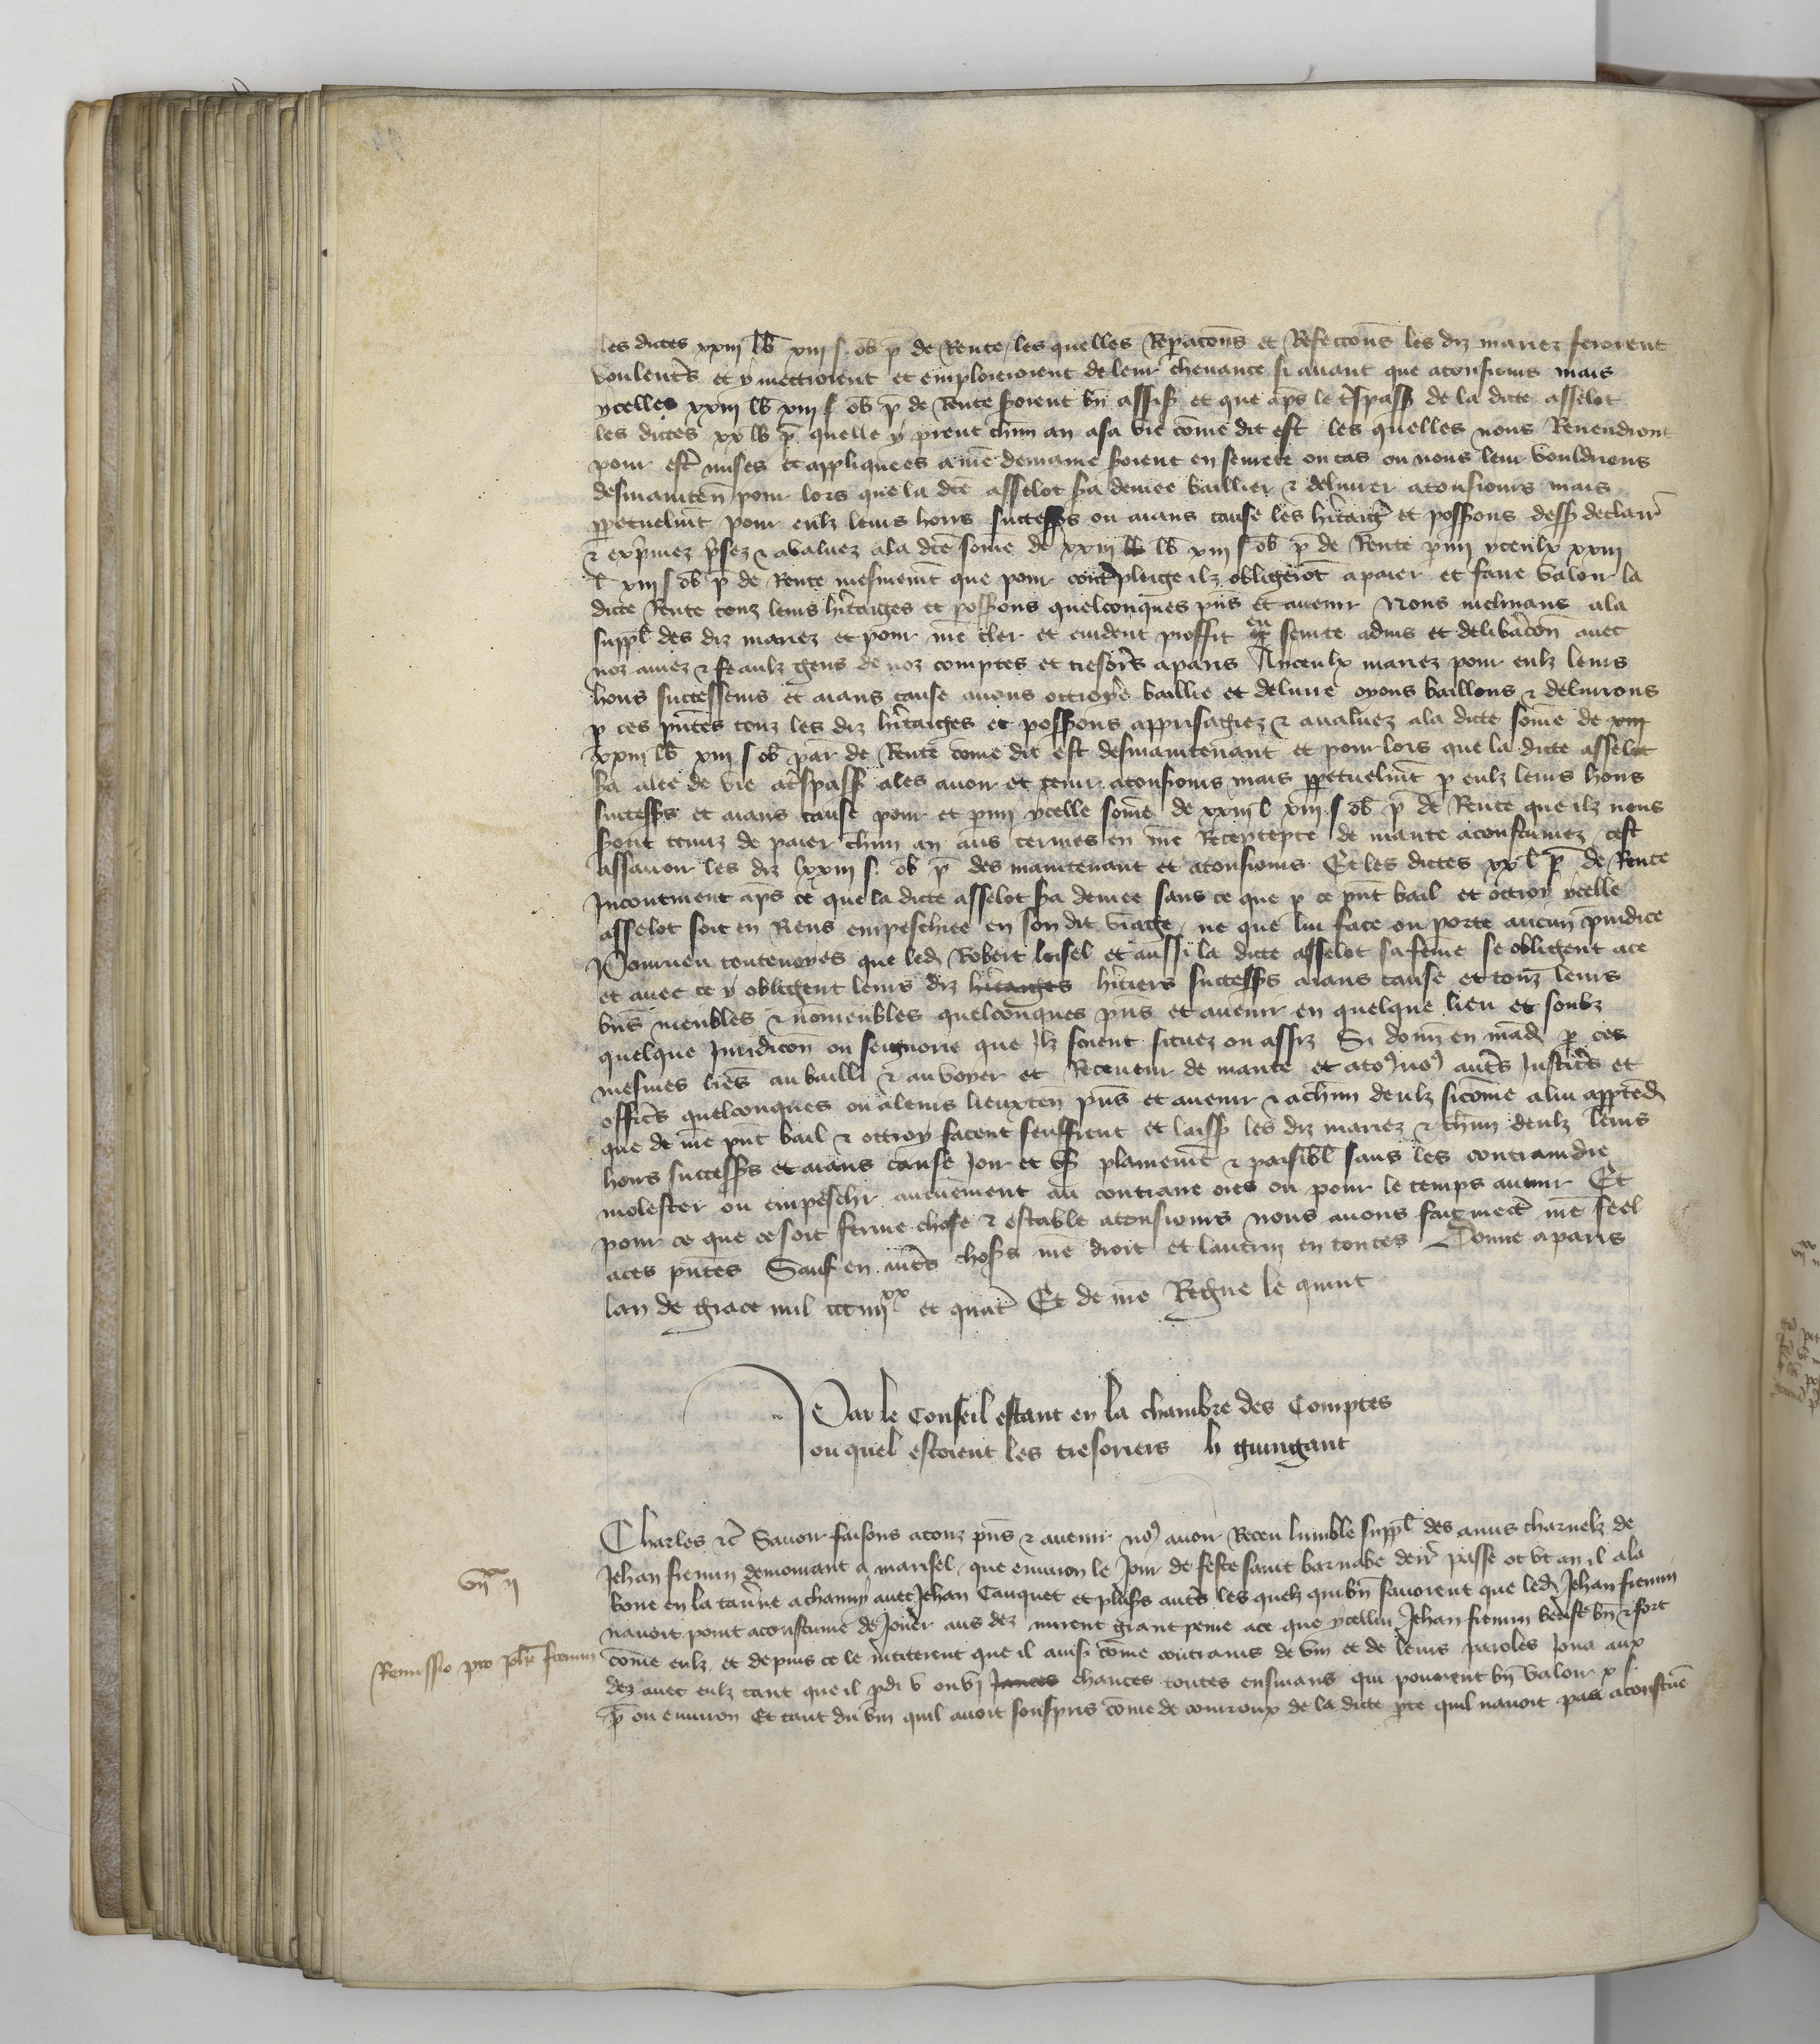 les dictes xxiii lb xiii s. ob p de Rente, les quelles Repacons et Refeccons les diz mariez feroient
voulentrs et y mettroient et emploieroient de leur chevance si avant que atousiours mais
ycelles xxiii lb xiii s ob p de Rente soient bn assis et que aps le trspass de la dicte asselot
les dictes xx lb p. quelle y prent chun an asa vie come dit est, les quelles nous Revendront
pour estr mises et appliquees a nre demaine soient en seurete ou cas ou nous leur vouldrions
desmainten pour lors que la dce asselot sa devee baillier & delivrer atousiours mais
ppetuelmt pour eulz leurs hoirs successrs ou aians cause les hritaigs et possons dess declairr
& exprimez prsez & avaluez ala dce some de xxiii lb xiii s ob p de Rente pmi yceulx xxiii
l xiii s ob p de Rente mesmemt que pour contrpleige ilz obligeront apaier et faire valoir la
dicte Rente touz leurs hritaiges et possons quelconques pns et avenir Nous inclinans ala
suppl des diz mariez et pour nre cler et evident proffit eu sur ce advis et delibracon avec
noz amez & feaulz gens de noz comptes et tresorrs aparis A yceulx mariez pour eulz leurs
hoirs successeurs et aians cause avons ottroye baillie et delivre oyons baillons & delivrons
p ces pntes touz les diz hritaiges et possons apprisagiez & avaluez ala dicte some de xiii
xxiii lb xiii s ob par de Rente come dit est desmaintenant et pour lors que la dicte asselot
sa alee de vie atrspass ales avoir et tenir atousiours mais ppetuelmt p eulz leurs hoirs
successrs et aians cause pour et pmi ycelle some de xxiii l xiii s ob p de Rente que ilz nous
sont tenuz de paier chun an aus termes en nre Receptepte de mante acoustumez, cest
assavoir les diz lxxiii s. ob p des maintenant et atousiours Et les dictes xx l p de Rente
Incontinent aps ce que la dicte asselot sa devee sans ce que p ce pnt bail et ottroy ycelle
asselot soit en Riens empeschiee en son dit viage, ne que lui face ou porte aucun preiudice
Pourveu toutevoyes que led Robert loisel et aussi la dicte asselot sa feme se obligent ace
et avec ce y obligent leurs diz hritaiges hritiers successrs aians cause et touz leurs
bns meubles & nonmeubles quelconques pns et avenir en quelque lieu et soubz
quelque Juridicon ou seignorie que Ilz soient situez ou assiz Si donn en mand p ces
mesmes lres au bailli & au voyer et Receveur de mante et atous nos autrs Justicrs et
officrs quelconques ou aleurs lieuxten pns et avenir & achun deulz sicome alui apptend
que de nre pnt bail & ottroy facent seuffrent et laissr les diz mariez & chun deulz leurs
hoirs successrs et aians cause Joir et usr plainemt & paisibl sans les contraindre
molester ou empeschr aucunement au contraire ores ou pour le temps avenir Et
pour ce que ce soit ferme chose & estable atousiours nous avons fait mectr nre seel
aces pntes Sauf en autrs choses nre droit et lautrui en toutes Donne aparis
lan de grace mil ccciiii xx et quatr Et de nre Regne le quint
Par le Conseil estant en la chambre des Comptes
ou quel estoient les tresoriers h guingant
Charles &c Savoir faisons atouz pns & avenir nos avoir Receu lumble suppl des amis charnelz de
vii xx ii
Jehan fremin demourant a marisel, que environ le Jour de feste saint barnabe derr passe ot un an il ala
boire en la tavrne a channy avec Jehan Cauquet et plusrs autrs les quelz qui bn savoient que led Jehan fremin
navoit point acoustume de Jouer aus dez mirent grant peine ace que ycellui Jehan fremin beust bn & fort
Remissio pro Johe fremin
come eulz et depuis ce le inciterent que il ainsi come contrains de vin et de leurs paroles Joua aux
dez avec eulz tant que il pdi v ou vi Jances chances toutes ensuians qui povoient bn valoir x s.
p ou environ Et tant du vin quil avoit souspris come de courroux de la dicte pte quil navoit pas acoustume